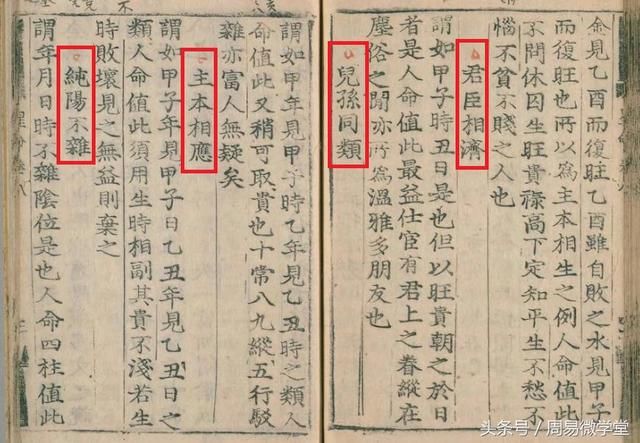 金見乙酉而復旺乙酉雖自敗之水見甲子
而復旺也所以為主本相生之例人命值此
不問休囚生旺貴祿高下定知平生不愁不
惱不貧不賤之人也
君臣相濟
謂如甲子時丑日是也但以旺貴朝之於日
者是人命值此最益仕宦有君上之眷縱在
塵俗之閒亦所為溫雅多朋友也
兒孫同類
謂如甲年見甲子時乙年見乙丑時之類人
命值此又稍可取貴也十常八九縱五行駁
雜亦富人無疑矣
主本相應
謂如甲子年見甲子日乙丑年見乙丑日之
類人命值此須用生時相副其貴不淺若生
時敗壞見之無益則棄之
純陽不雜
謂年月日時不雜陰位是也人命四柱值此
頭条号／周易微学堂